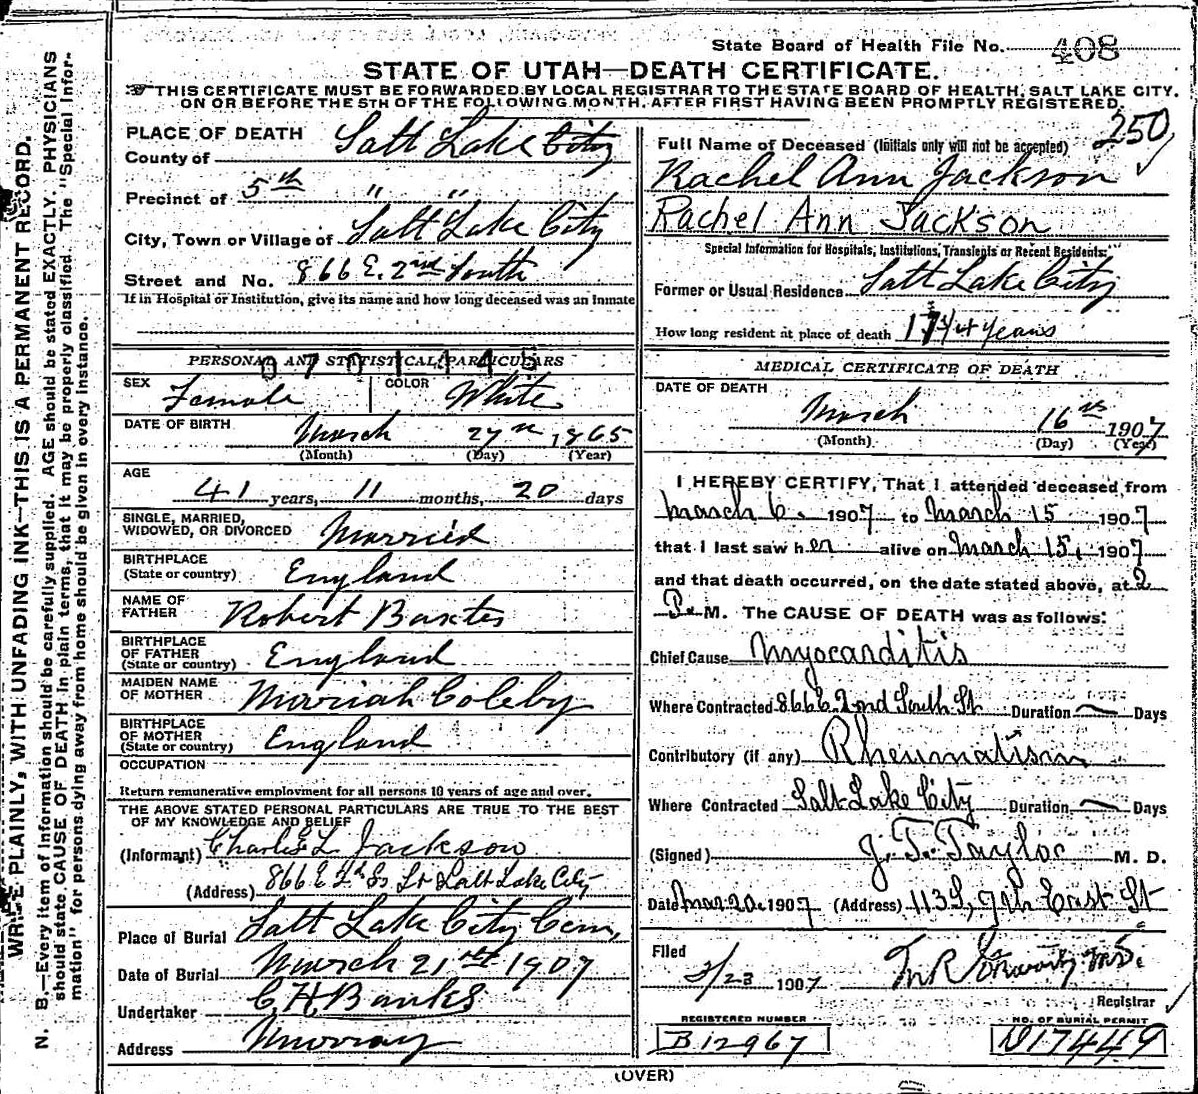 State Board of Health File No. 408
STATE OF UTAH—DEATH CERTIFICATE.
THIS CERTIFICATE MUST BE FORWARDED BY LOCAL REGISTRAR TO THE STATE BOARD OF HEALTH, SALT LAKE CITY,
ON OR BEFORE THE 5TH OF THE FOLLOWING MONTH, AFTER FIRST HAVING BEEN PROMPTLY REGISTERED.
WRITE PLAINLY, WITH UNFADING INK—THIS IS A PERMANENT RECORD.
N. B.—Every item of Information should be carefully supplied. AGE should be stated EXACTLY. PHYSICIANS
should state CAUSE OF DEATH in plain terms, that it may be properly classified. The "Special Infor-
mation" for persons dying away from home should be given in every instance.
PLACE OF DEATH
County of Salt Lake City
Precinct of 5th " "
City, Town or Village of Salt Lake City
Street and No. 866 E. 2nd South
If in Hospital or Institution, give its name and how long deceased was an Inmate
PERSONAL AND STATISTICAL PARTICULARS
0701445
SEX Female COLOR White
DATE OF BIRTH March 27th 1865
(Month) (Day) (Year)
AGE
41 years, 11 months, 20 days
SINGLE, MARRIED,
WIDOWED, OR DIVORCED Married
BIRTHPLACE
(State or country) England
NAME OF
FATHER Robert Baxter
BIRTHPLACE
OF FATHER
(State or country) England
MAIDEN NAME
OF MOTHER Morriah Coleby
BIRTHPLACE
OF MOTHER
(State or country) England
OCCUPATION
Return remunerative employment for all persons 10 years of age and over.
THE ABOVE STATED PERSONAL PARTICULARS ARE TRUE TO THE BEST
OF MY KNOWLEDGE AND BELIEF
(Informant) Charles L Jackson
(Address) 866 E St Salt Lake City
Place of Burial Salt Lake City Cem,
Date of Burial March 21st 1907
Undertaker C. H. Banks
Address Murray
250
Full Name of Deceased (Initials only will not be accepted)
Rachel Ann Jackson
Rachel Ann Jackson
Special Information for Hospitals, Institutions, Transients or Recent Residents:
Former or Usual Residence Salt Lake City
How long resident at place of death 17 3/4 years
MEDICAL CERTIFICATE OF DEATH
DATE OF DEATH
March 16th 1907
(Month) (Day) (Year)
I HEREBY CERTIFY, That I attended deceased from
March 6. 1907 to March 15 1907
that I last saw her alive on March 15, 1907
and that death occurred, on the date stated above, at 2
P. M. The CAUSE OF DEATH was as follows:
Chief Cause Myocarditis
Where Contracted 866 E 2nd South St Duration — Days
Contributory (if any) Rheumatism
Where Contracted Salt Lake City Duration — Days
(Signed) J. T. Taylor M. D.
Date Mar 20. 1907 (Address) 113 S, 9th East St
Filed
3/23 1907
Registrar
REGISTERED NUMBER
B12967
NO. OF BURIAL PERMIT
D17449
(OVER)